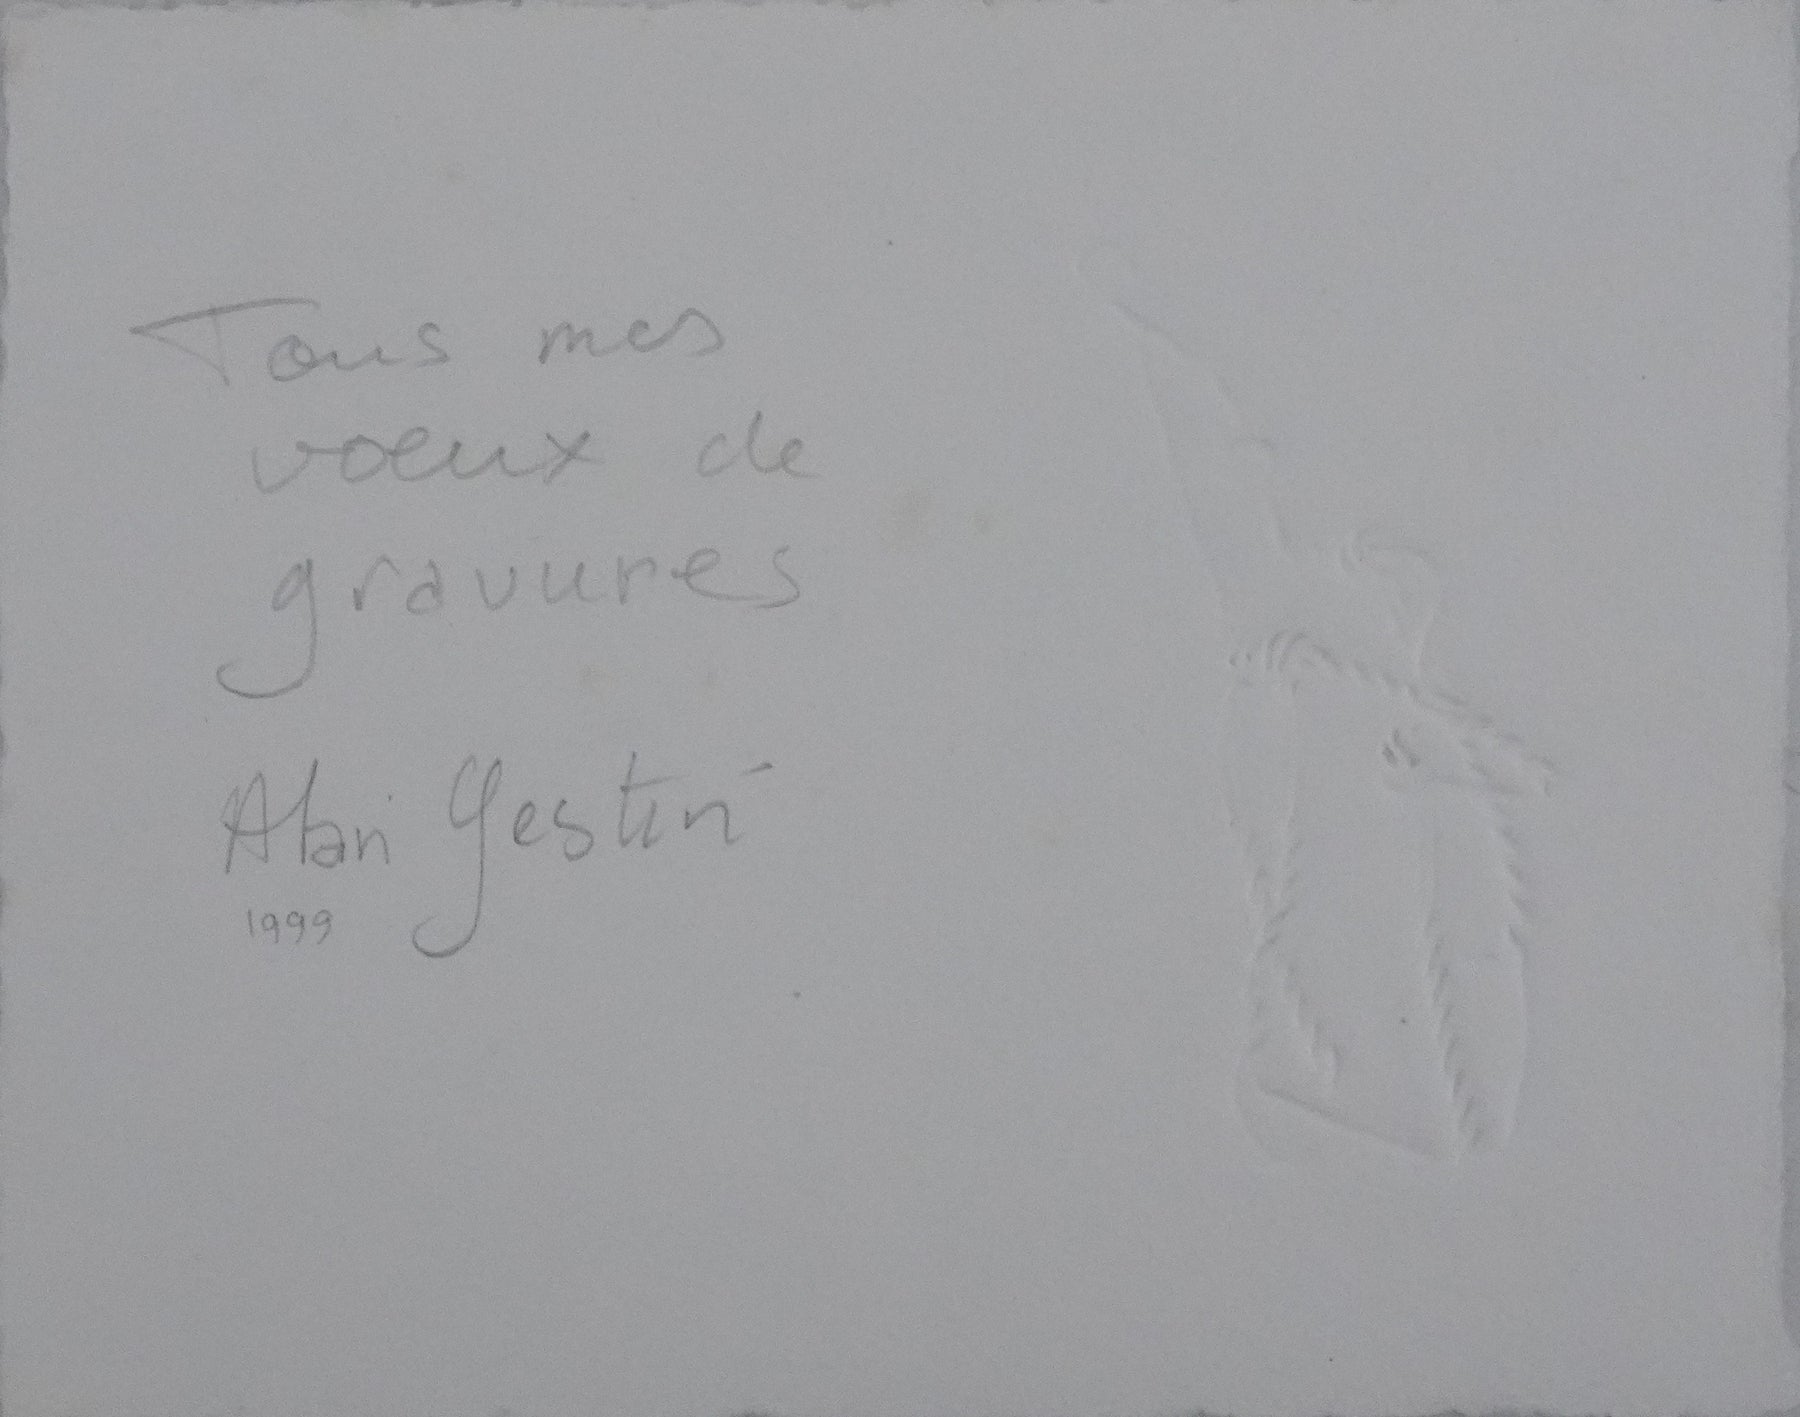 Tous mes
voeux de
gravures
Alain Yestin
1999